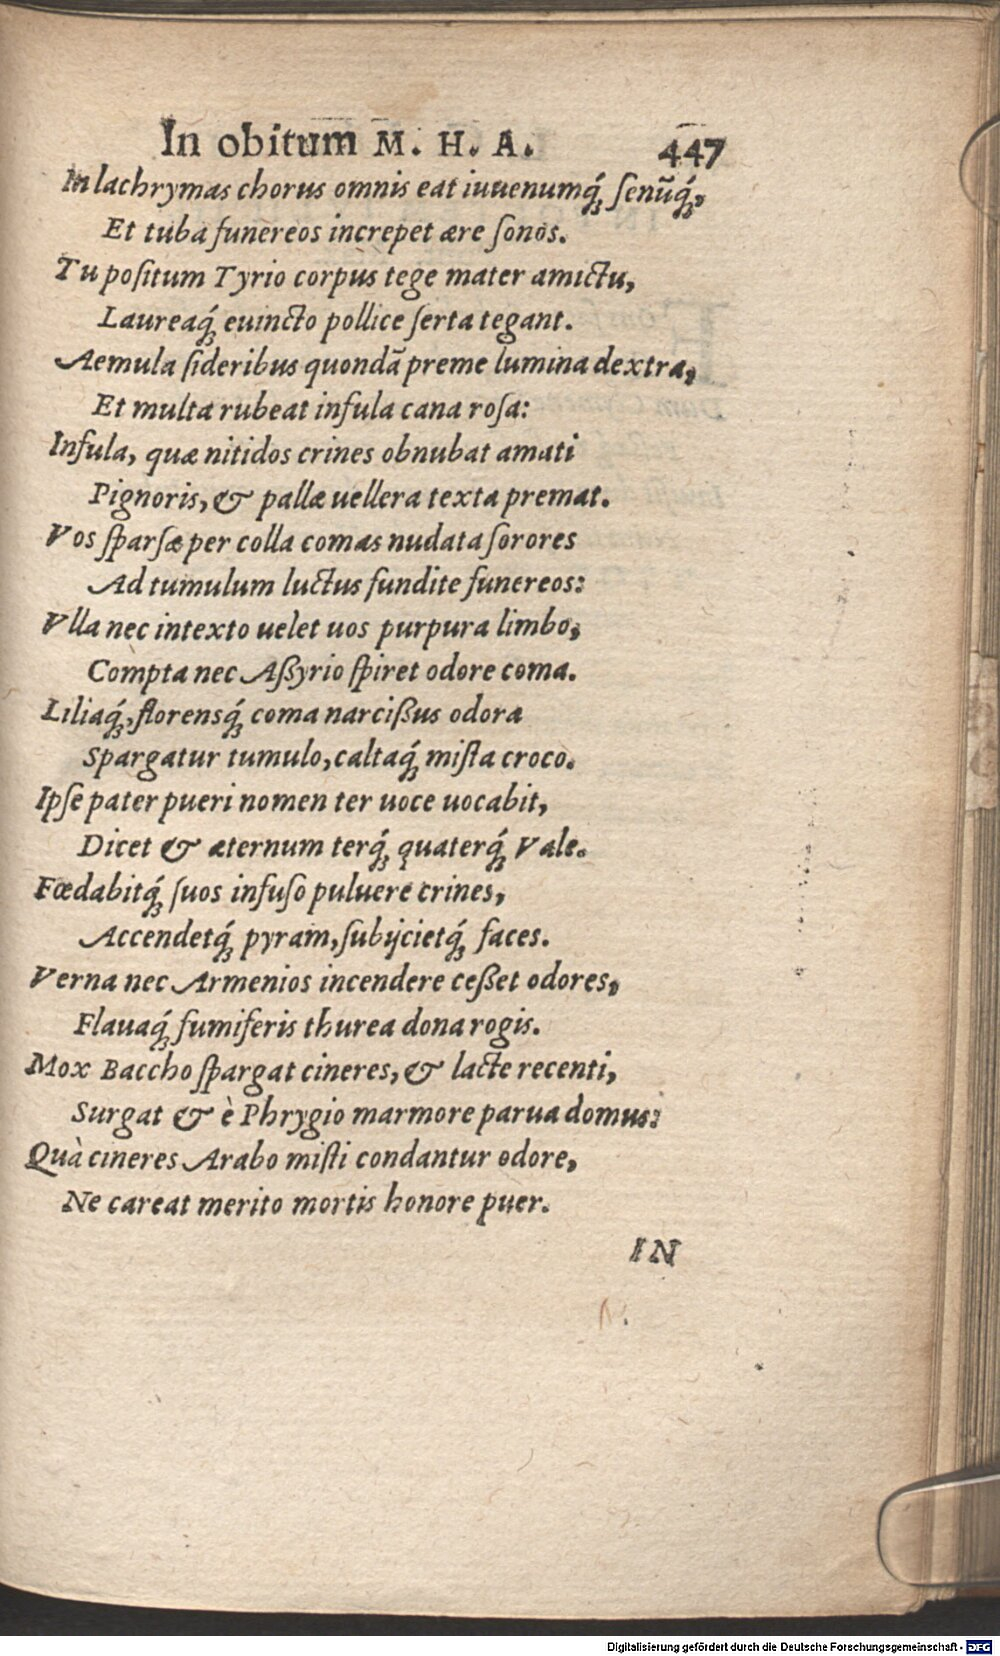 In obitum M. H. A. 447
In lachrymas chorus omnis eat iuuenumq́; ſenũq́;,
Et tuba funereos increpet ære ſonos.
Tu poſitum Tyrio corpus tege mater amictu,
Laureaq́; euincto pollice ſerta tegant.
Aemula ſideribus quondã preme lumina dextra,
Et multa rubeat infula cana roſa:
Infula, quæ nitidos crines obnubat amati
Pignoris, & pallæ uellera texta premat.
Vos ſparſæ per colla comas nudata ſorores
Ad tumulum luctus fundite funereos:
Vlla nec intexto uelet uos purpura limbo,
Compta nec Aßyrio ſpiret odore coma.
Liliaq́;, florensq́; coma narcißus odora
Spargatur tumulo, caltaq́; miſta croco.
Ipſe pater pueri nomen ter uoce uocabit,
Dicet & æternum terq́; quaterq́; Vale.
Fœdabitq́; ſuos infuſo puluere crines,
Accendetq́; pyram, ſubijcietq́; faces.
Verna nec Armenios incendere ceßet odores,
Flauaq́; fumiferis thurea dona rogis.
Mox Baccho ſpargat cineres, & lacte recenti,
Surgat & è Phrygio marmore parua domus:
Quà cineres Arabo miſti condantur odore,
Ne careat merito mortis honore puer.
IN
Digitalisierung gefördert durch die Deutsche Forschungsgemeinschaft - DFG